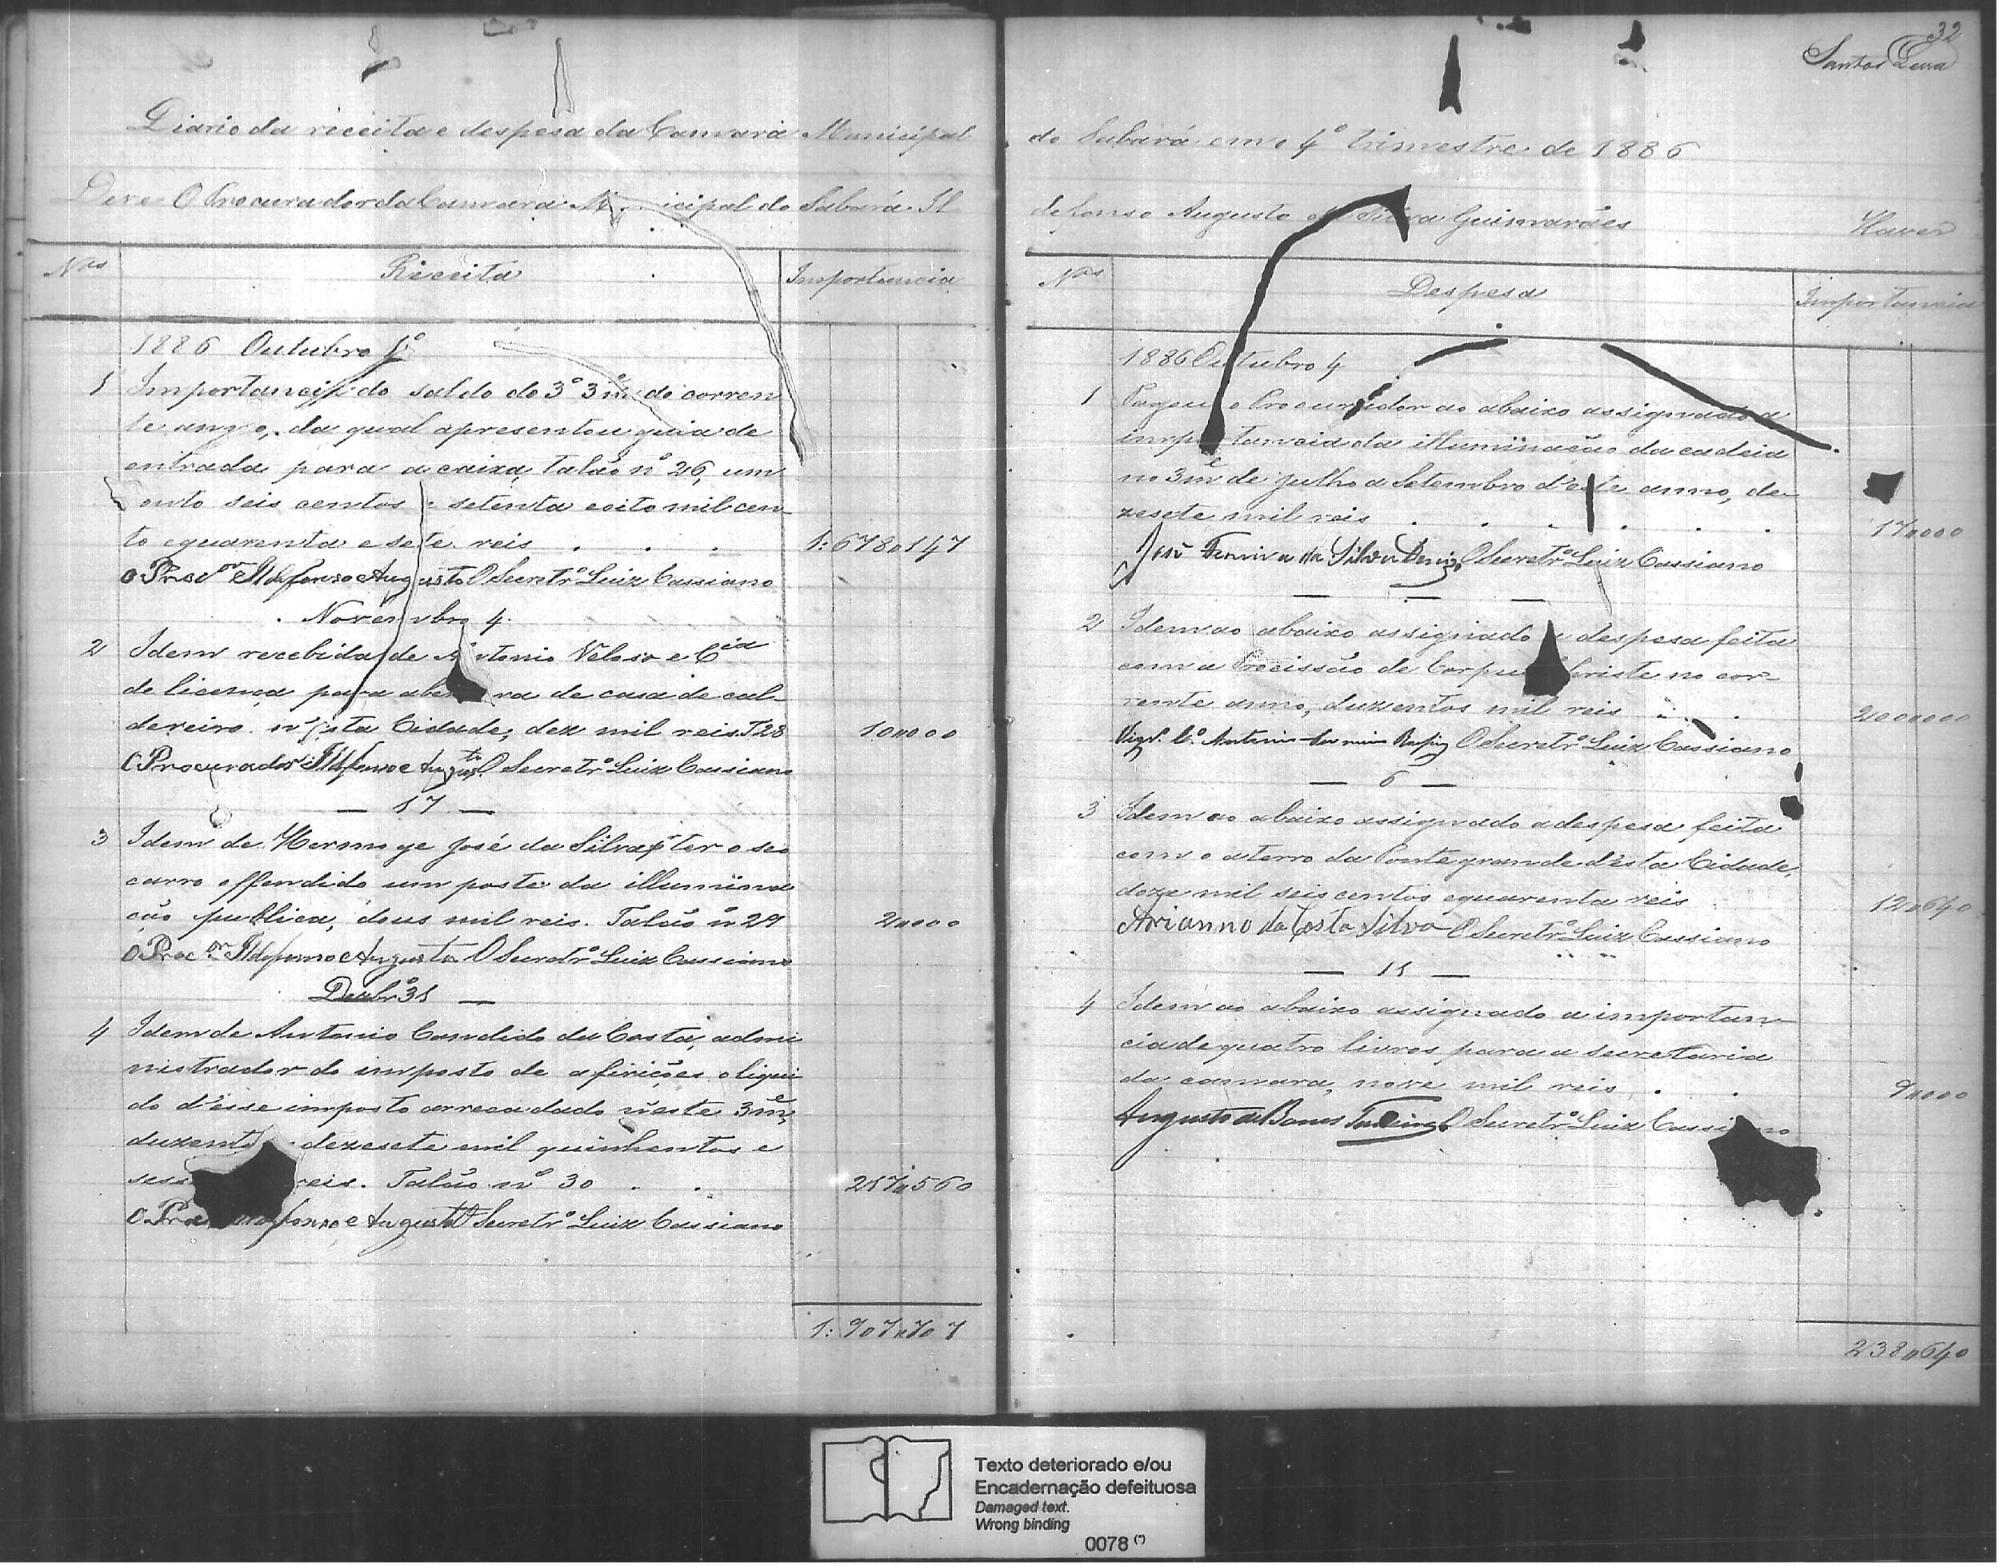 Diario da receita e despesa da Camara Municipal
Deve O Procurador da Camara Municipal do Sabará Il
Nos Receita Importancia
1886 Outubro 1º
1 Importancia do saldo do 3º 3mê do corren
te anno, da qual apresentou guia de
entrada para a caixa, talão nº 26, um
conto seis centos e setenta e oito mil cen
to e quarenta e sete reis . . . 1:678"147
O Procor Ildefonso Augusto O Secretrº Luiz Cassiano
Novembro 4
2 Idem recebida de Antonio Veloso e Cia
de licença para abertura de casa de cal-
dereiro nesta Cidade, dez mil reis T 28 10"000
O Procurador Ildefonso Augto O Secretrº Luiz Cassiano
— 17 —
3 Idem de Hermoge José da Silva pr ter o seo
carro offendido um poste da illumina
ção publica, dous mil reis. Talão n 29 2"000
O Procor Ildefonso Augusto O Secretrº Luiz Cassiano
Dezbrº 31 —
4 Idem de Antonio Candido da Costa, admi
nistrador do imposto de aferições o liqui
do d'esse imposto arrecadado n'este 3mê,
duzentos e dezesete mil quinhentos e
sess reis. Talão nº 30 . . 217"560
O Proc Ildefonso Augusto O Secretrº Luiz Cassiano
1:907"707
32
Santos Lima
do Sabará em o 4º trimestre de 1886
defonso Augusto da Silva Guimarães Haver
Nos Despesa Importancia
1886 Outubro 4
1 Pagou o Procurador ao abaixo assignado a
importancia da illuminação da cadeia
no 3mê de Julho a Setembro d'este anno, de-
zesete mil reis . . . . . . 17"000
José Ferreira da Silva Diniz O Secretrº Luiz Cassiano
— — —
2 Idem ao abaixo assignado a despesa feita
com a Procissão de Corpus Christe no cor-
rente anno, duzentos mil reis . . 200"000
Vigr. Cº Antonio O Secretrº Luiz Cassiano
— 6 —
3 Idem ao abaixo assignado a despesa feita
com o aterro da Ponte grande d'esta Cidade,
doze mil seis centos e quarenta reis 12"640
Arianno da Costa Silva O Secretrº Luiz Cassiano
— 11 —
4 Idem ao abaixo assignado a importan
cia de quatro livros para a secretaria
da camara, nove mil reis . . 9"000
Augusto de O Secretrº Luiz Cassiano
238"640
Texto deteriorado e/ou
Encadernação defeituosa
Damaged text.
Wrong binding
0078 (*)